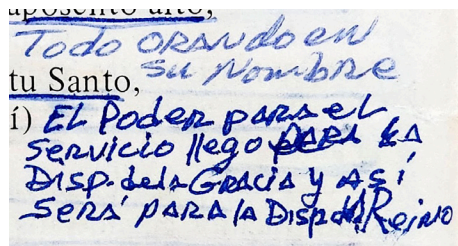 aposento alto,
Todo ORANDO en
su Nombre
tu Santo,
í) EL Poder para el
servicio llego PARA LA
DISP. de la GRACIA y ASÍ
SERÁ PARA la DISP. del Reino